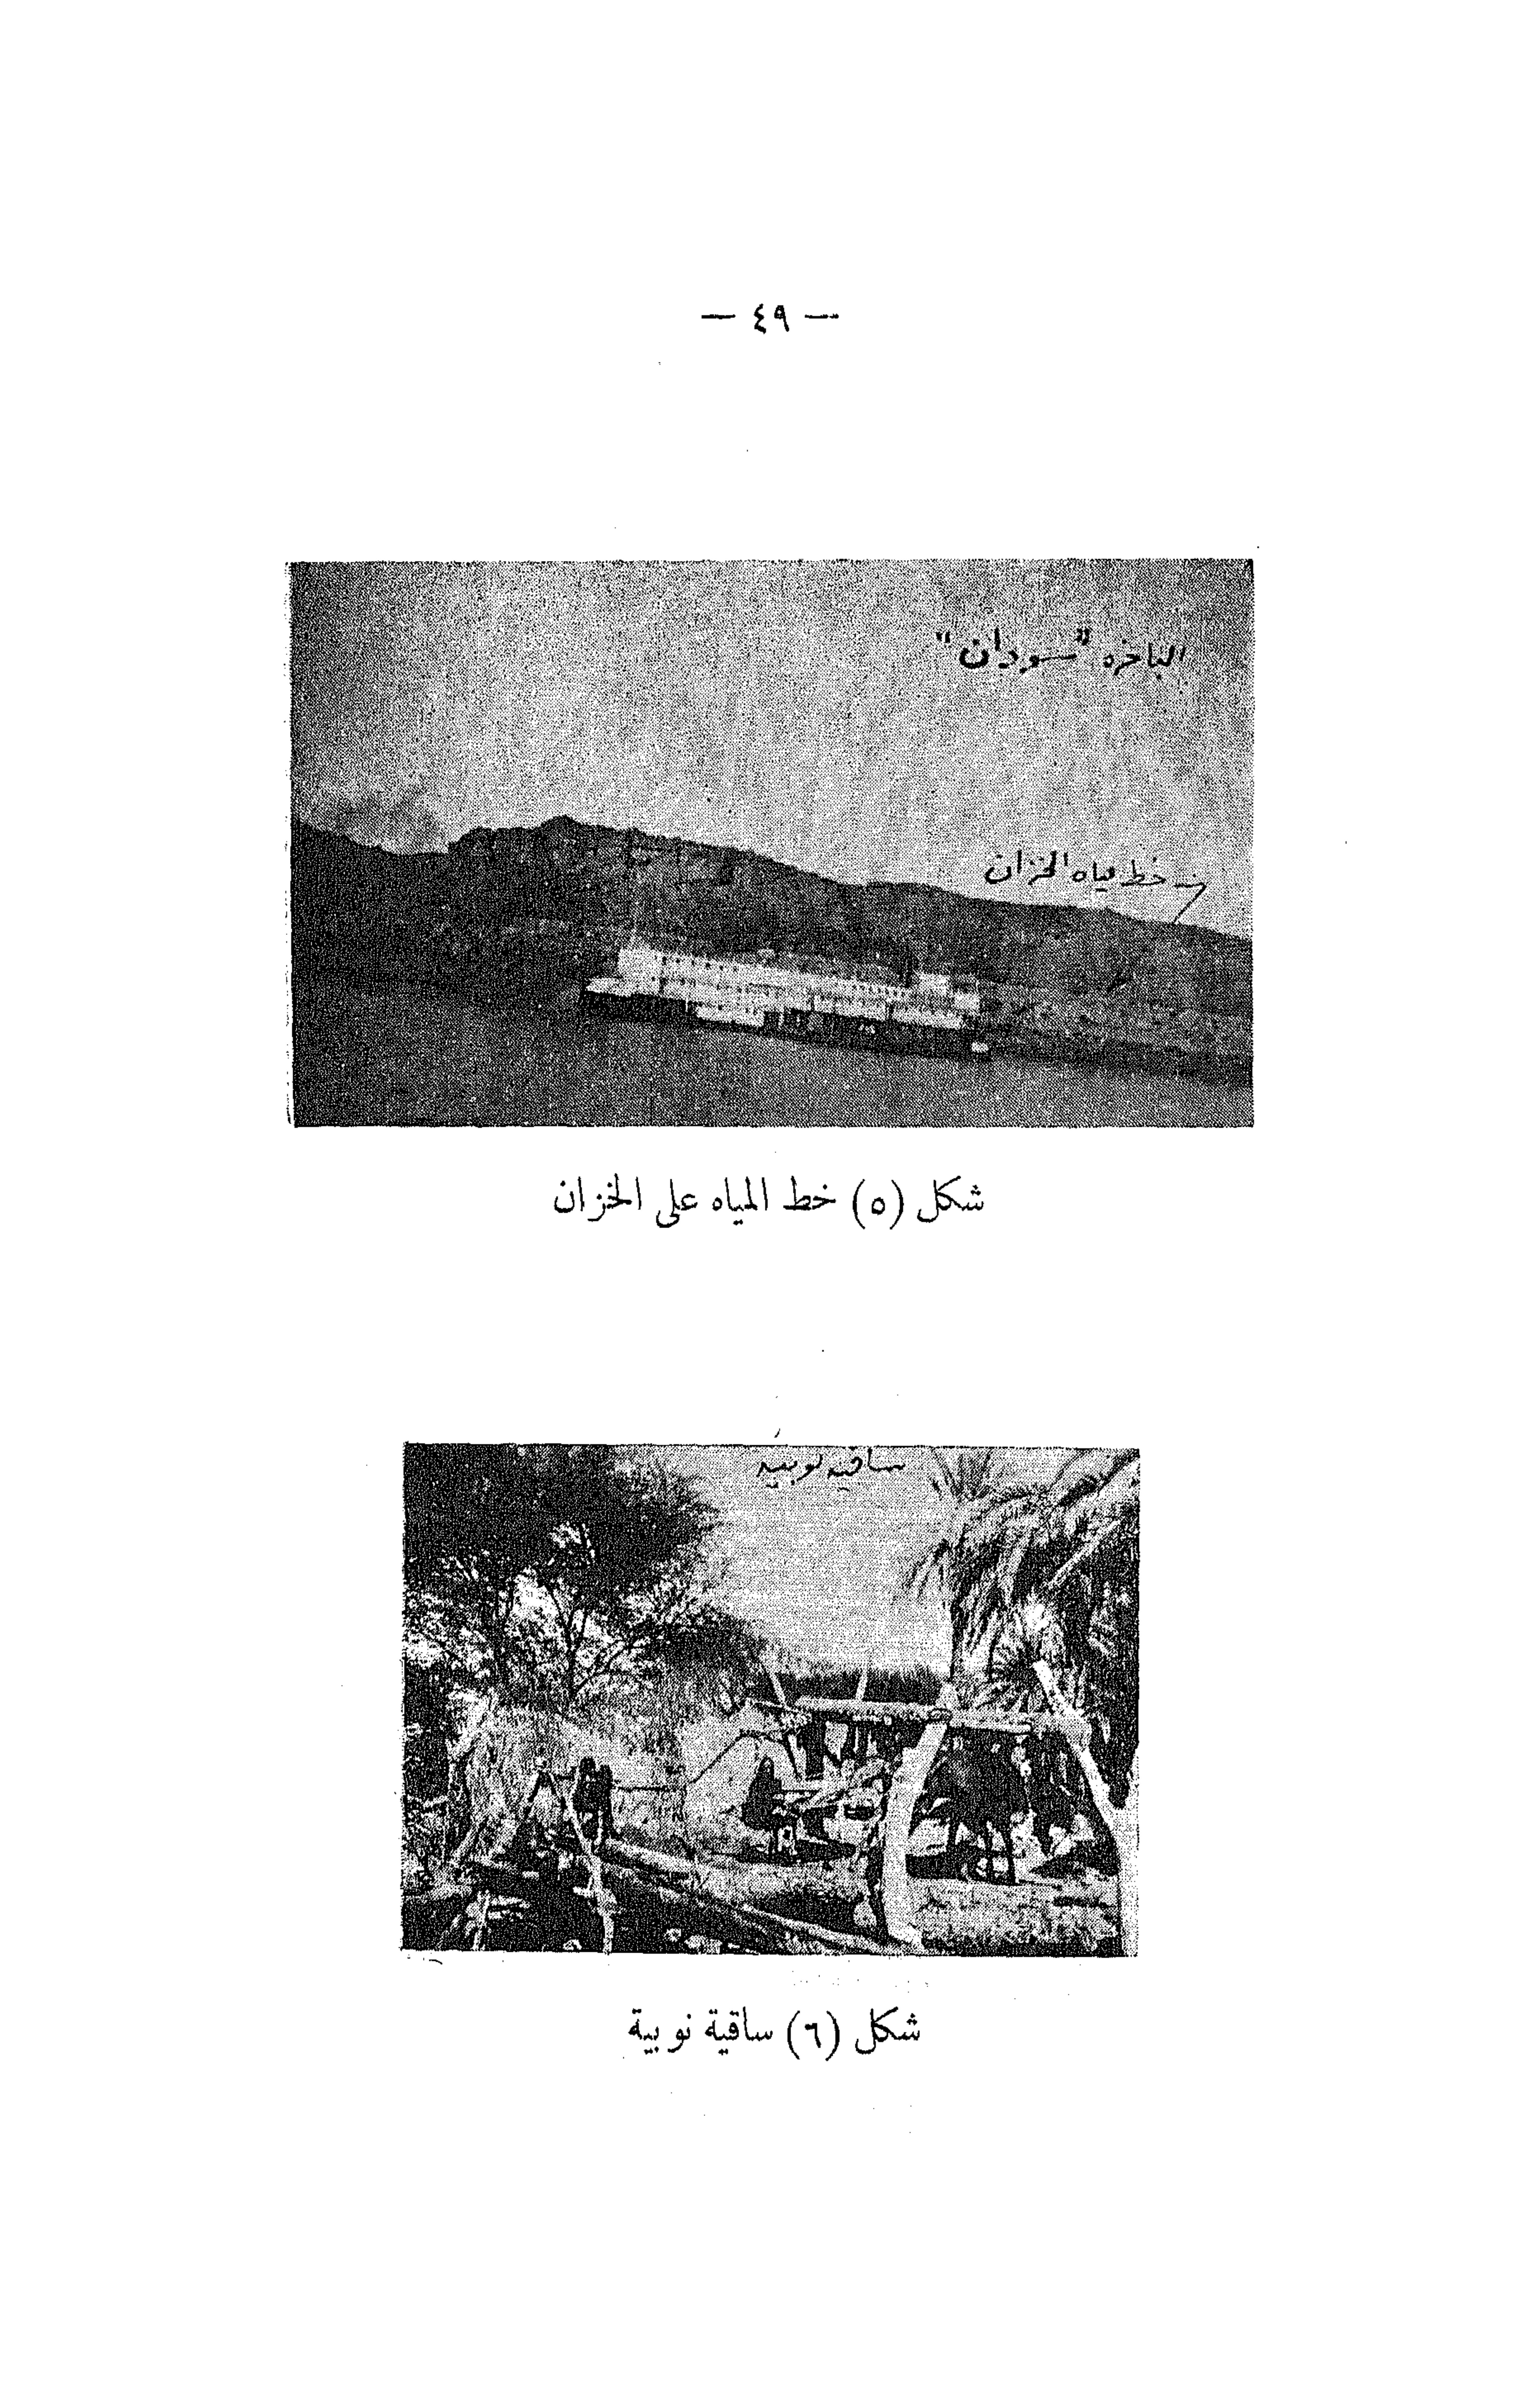 — ٤٩ —
الباخره "سودان"
خط مياه الخزان
شكل (٥) خط المياه على الخزان
ساقيه نوبيه
شكل (٦) ساقية نوبية